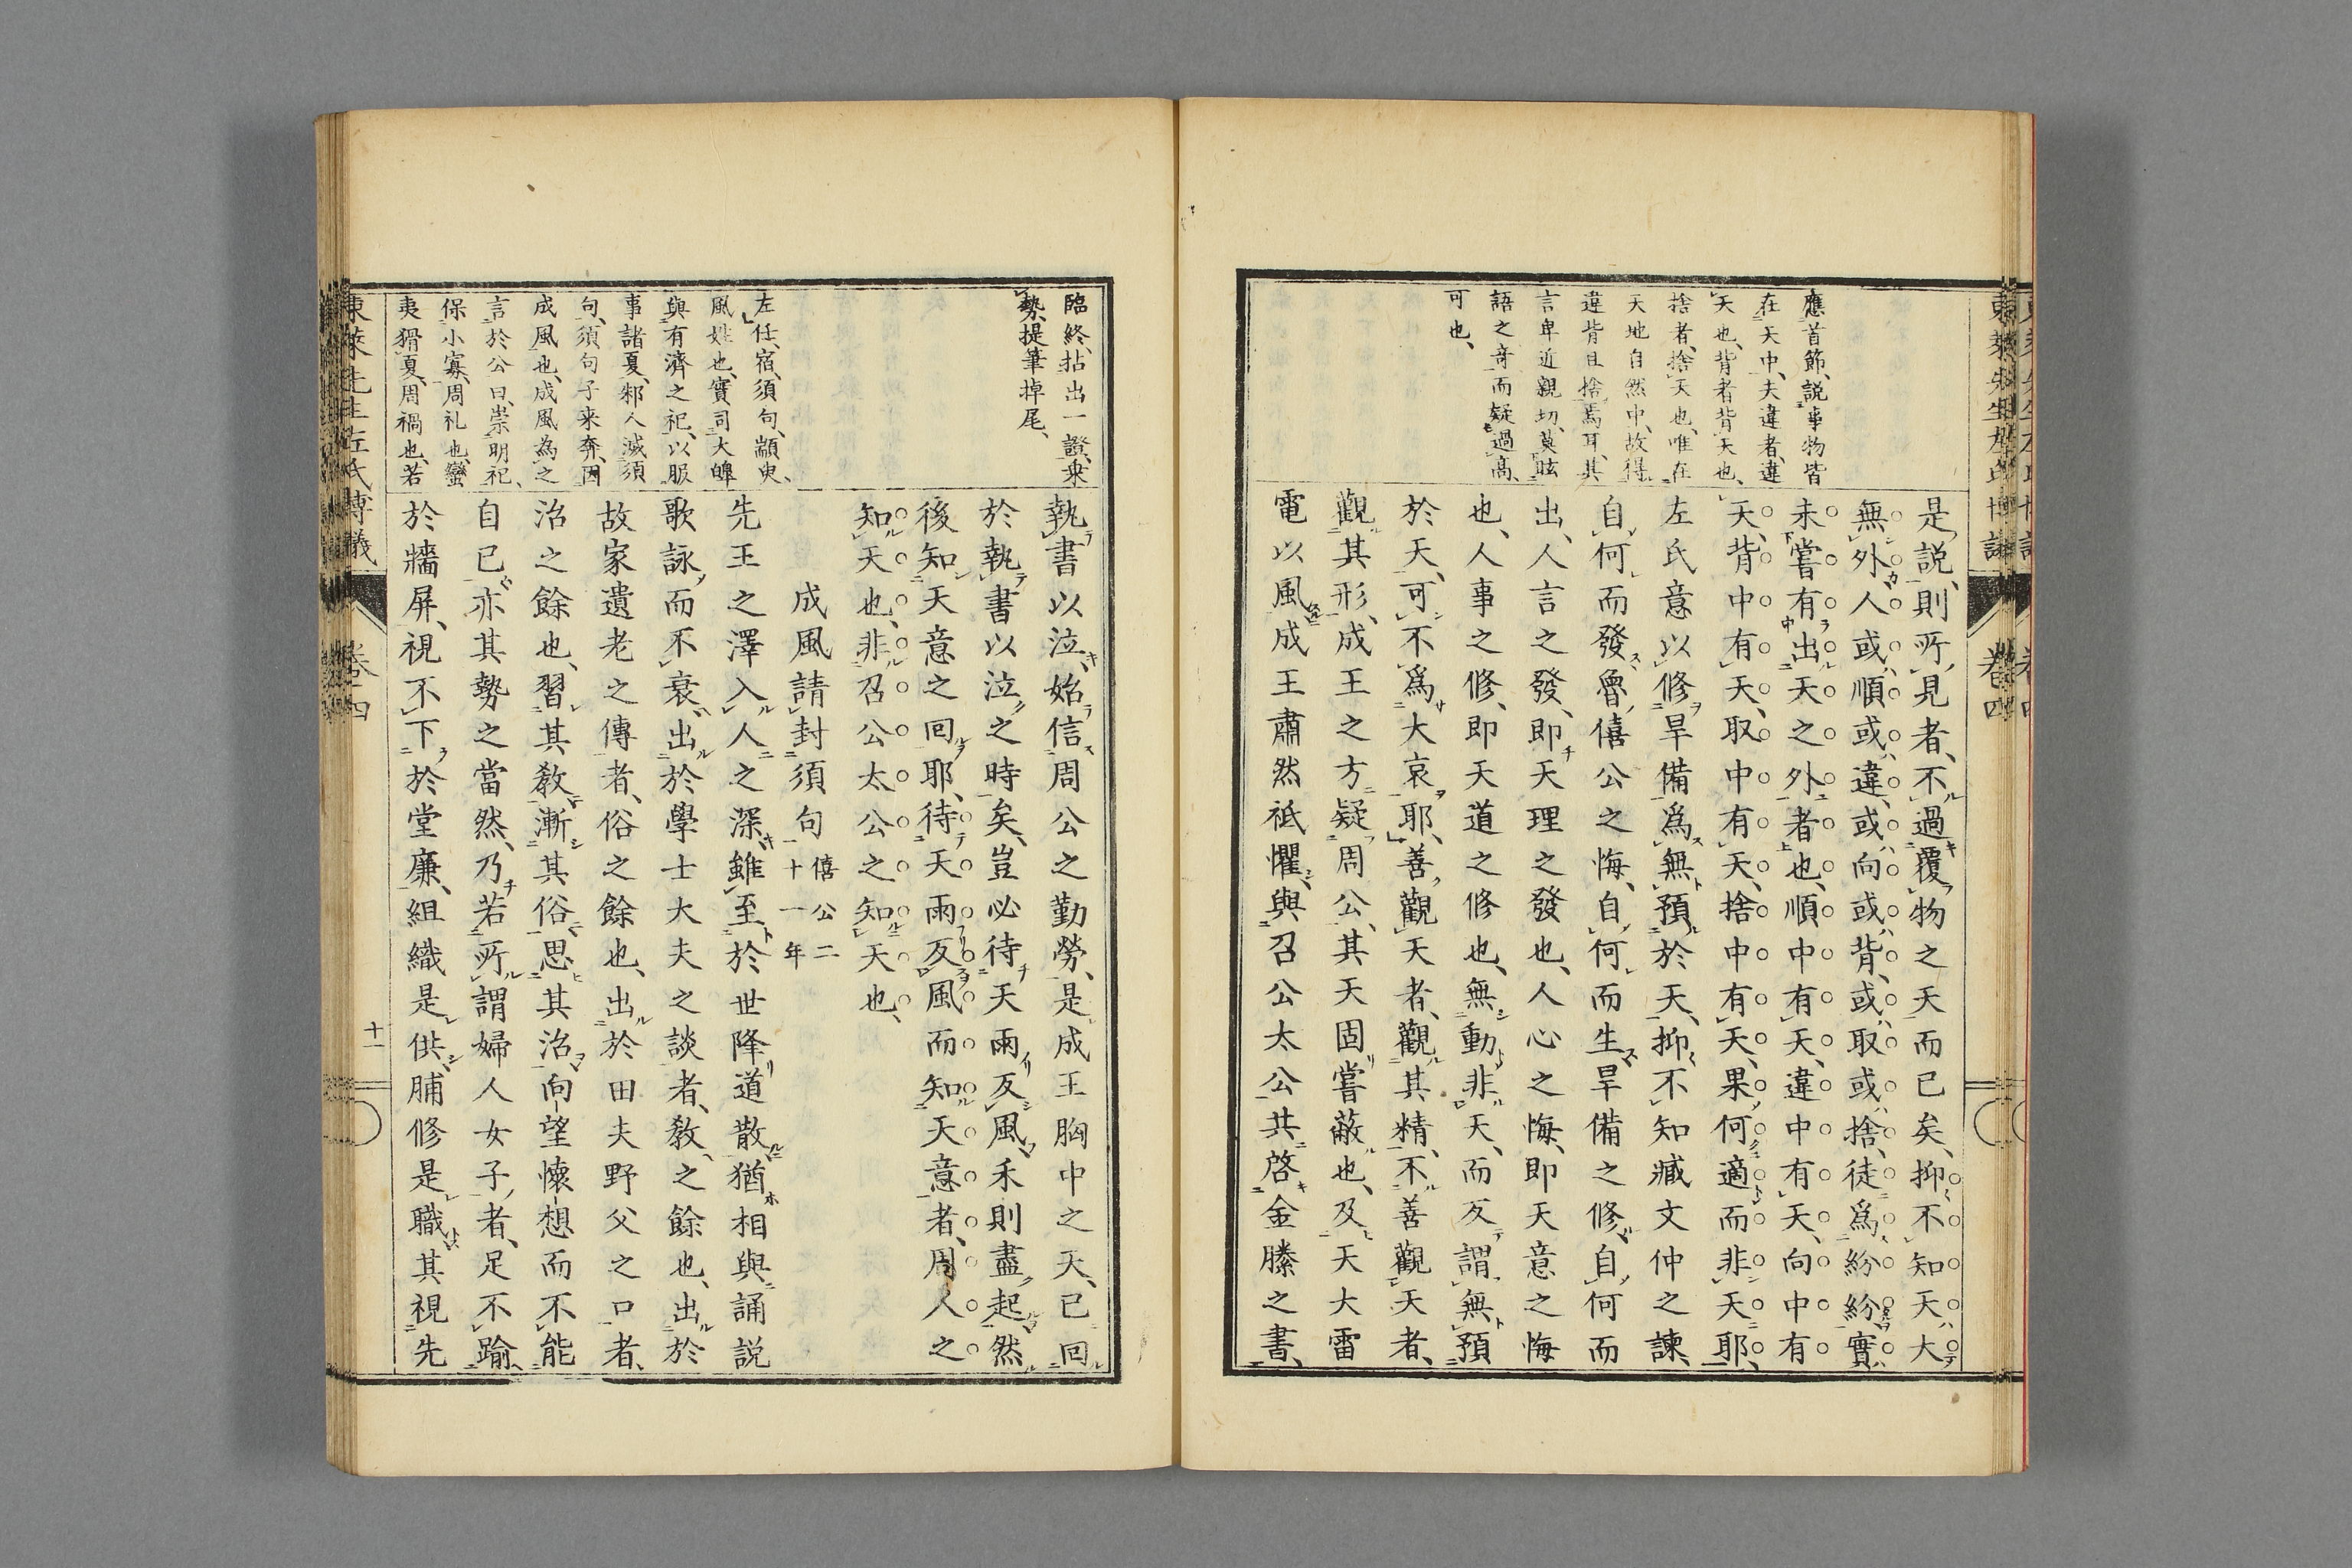 東萊先生左氏博議
卷四
應首節、説事物皆
在天中、夫違者、違
天也、背者背天也、
捨者、捨天也、唯在
天地自然中、故得
違背且捨焉耳、其
言卑近親切、莫眩
語之奇而疑過高、
可也、
是説、則所見者、不過覆物之天而已矣、抑不知天大
無外人或順或違、或向或背、或取或捨、徒爲紛紛實
未嘗有出天之外者也、順中有天、違中有天、向中有
天、背中有天、取中有天、捨中有天、果何適而非天耶、
左氏意以修旱備爲無預於天、抑不知臧文仲之諫、
自何而發、魯僖公之悔、自何而生、旱備之修、自何而
出、人言之發、即天理之發也、人心之悔、即天意之悔
也、人事之修、即天道之修也、無動非天、而反謂無預
於天、可不爲大哀耶、善觀天者、觀其精、不善觀天者、
觀其形、成王之方疑周公、其天固嘗蔽也、及天大雷
電以風成王肅然祗懼、與召公太公共啓金縢之書、
臨終、拈出一證、乘
勢、提筆掉尾、
左任、宿、須句、顓臾、
風姓也、實司大皥
與有濟之祀、以服
事諸夏、邾人滅須
句、須句子来奔、因
成風也、成風為之
言於公曰、崇明祀、
保小寡、周礼也、蠻
夷猾夏、周禍也、若
執書以泣、始信周公之勤勞、是成王胸中之天、已回
於執書以泣之時矣、豈必待天雨反風、禾則盡起、然
後知天意之回耶、待天雨反風而知天意者、周人之
知天也、非召公太公之知天也、
成風請封須句 僖公二十一年
先王之澤入人之深、雖至於世降道散猶相與誦説
歌詠、而不衰、出於學士大夫之談者、教之餘也、出於
故家遺老之傳者、俗之餘也、出於田夫野父之口者、
治之餘也、習其教漸其俗、思其治、向望懷想而不能
自已、亦其勢之當然、乃若所謂婦人女子者、足不踰
於牆屏、視不下於堂廉、組織是供、脯修是職、其視先
東萊先生左氏博議
卷四
十一